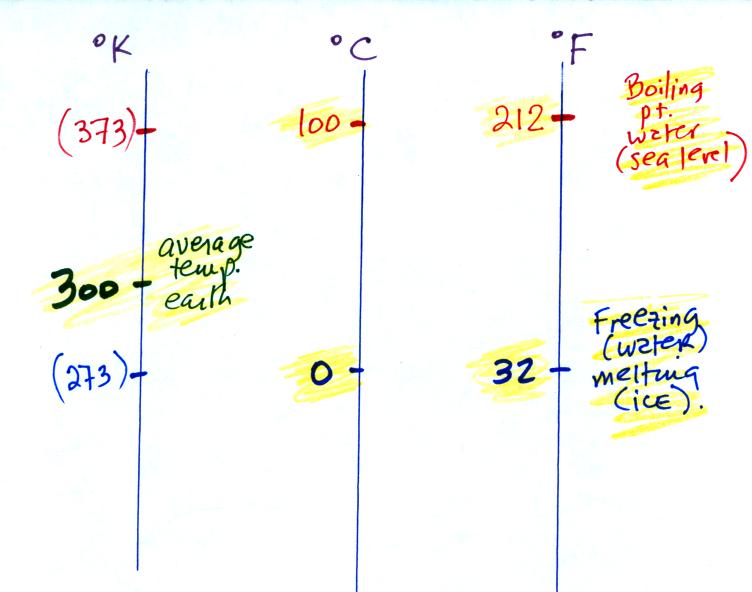 °K °C °F
(373) 100 212
Boiling
pt.
water
(sea level)
300
average
temp.
earth
(273) 0 32
Freezing
(water)
melting
(ice).